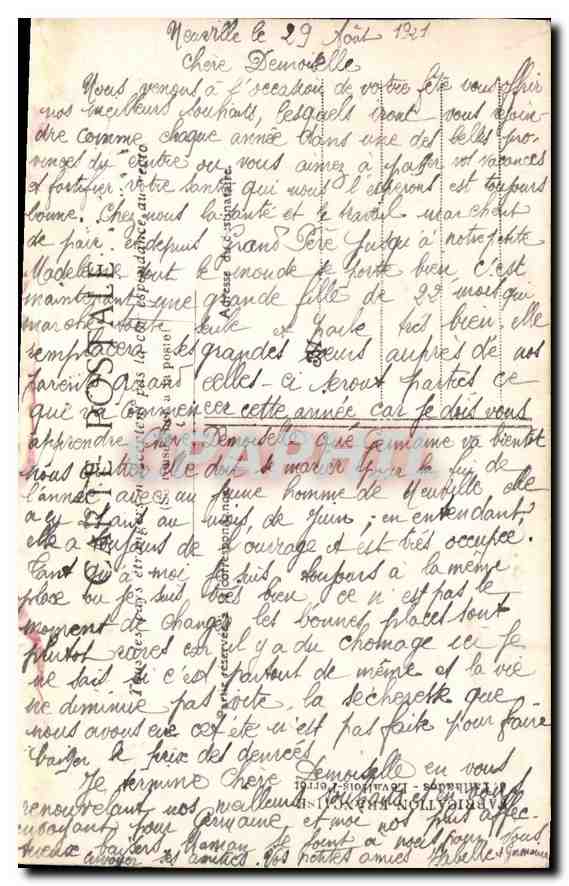 Neuville le 29 Août 1921
Chère Demoiselle
Nous venons à l'occasion de votre fête vous offrir
nos meilleurs souhaits, lesquels iront vous rejoin-
dre comme chaque année dans une des belles pro-
vinces du centre ou vous aimez à passer vos vacances
et fortifier votre santé qui nous l'espérons est toujours
bonne. Chez nous la santé et le travail marchent
de pair et depuis Grand Père jusqu'à notre petite
Madeleine tout le monde se porte bien c'est
maintenant une grande fille de 22 mois qui
marche toute seule et parle très bien elle
remplacera ses grandes soeurs auprès de nos
parents quand celles-ci seront parties ce
qui va commencer cette année car je dois vous
apprendre Chère Demoiselle que Germaine va bientôt
nous quitter elle doit se marier pour la fin de
l'année avec un jeune homme de Neuville elle
a eu ans au mois de Juin; en entendant
elle a toujours de l'ouvrage et est très occupée.
Tant qu'à moi je suis toujours à la même
place ou je suis très bien ce n'est pas le
moment de changer les bonnes places sont
plutot rares car il y a du chomage ici je
ne sais si c'est partout de même et la vie
ne diminue pas vite, la sécheresse que
nous avons eue cet été n'est pas faite pour faire
baisser le prix des denrées
Je termine Chère Demoiselle en vous
renouvelant nos meilleurs
pour Germaine et moi nos plus affec-
tueux baisers Maman se joint à nous pour vous
envoyer ses amitiés. Vos petites amies et Germaine
CARTE POSTALE
Tous les pays étrangers n'acceptent pas la correspondance au recto
(Se renseigner à la poste)
Adresse du destinataire
Partie réservée à la correspondance
FABRICATION FRANÇAISE
Levallois-Perret
CPAPHIL